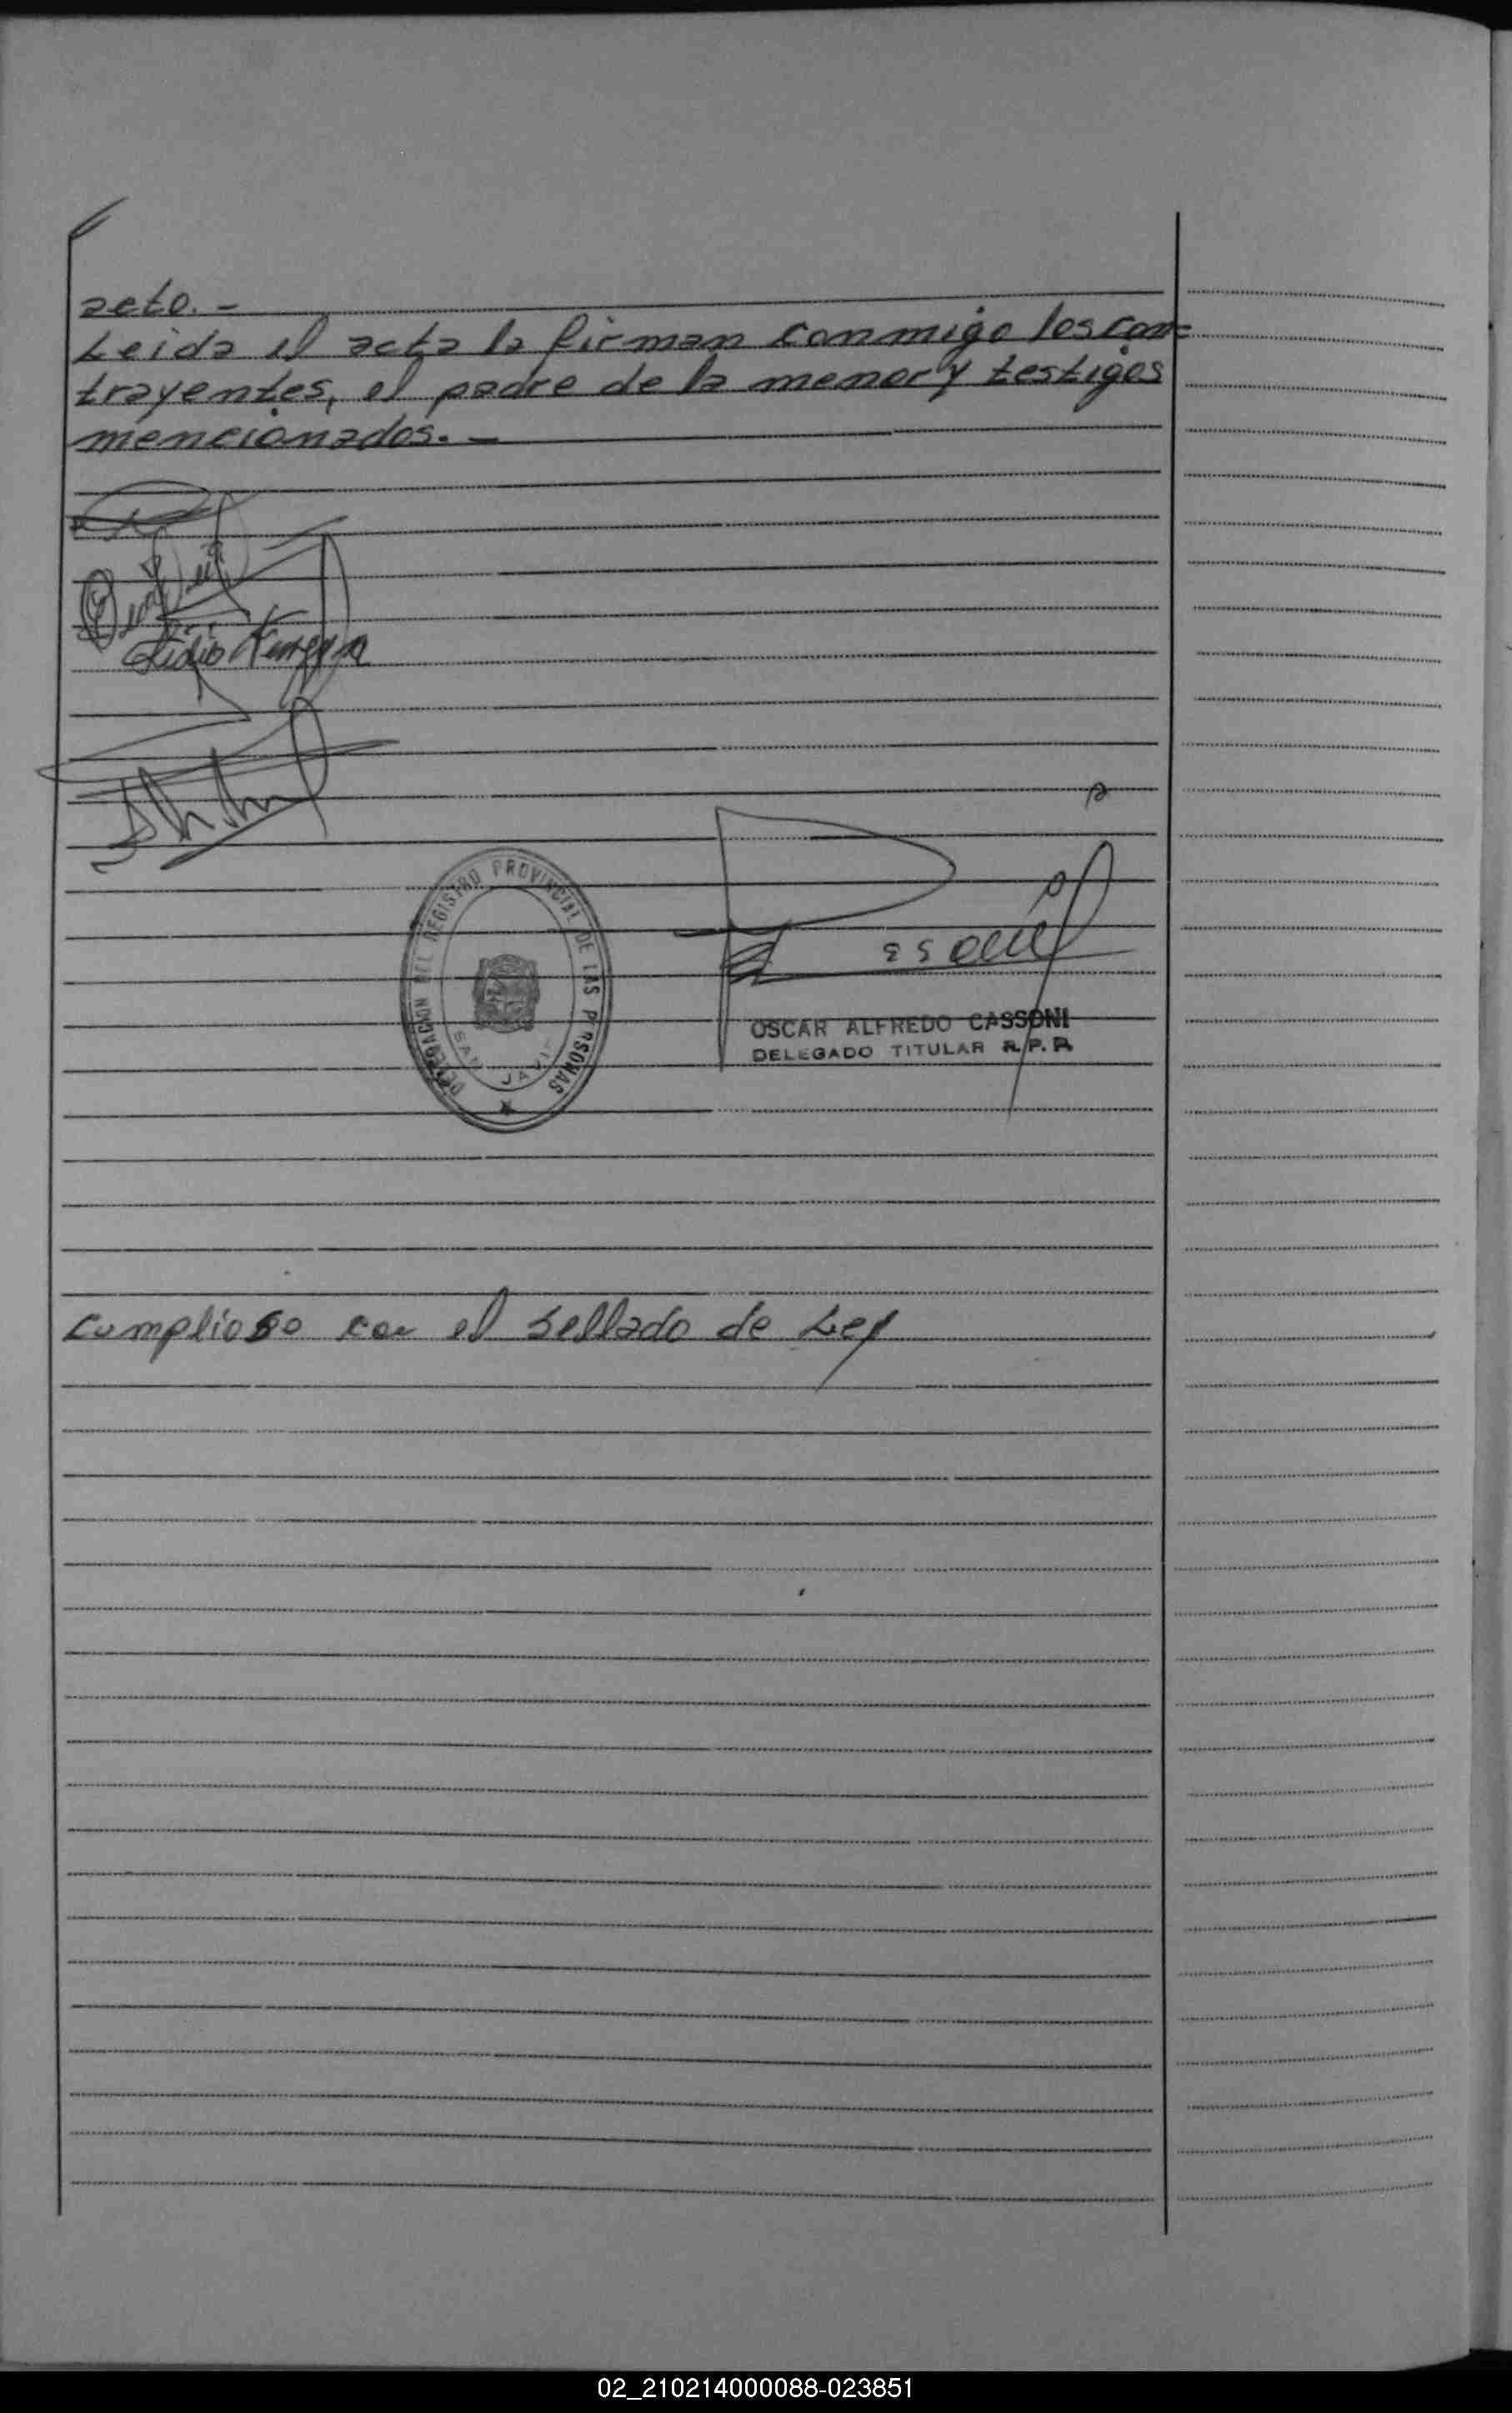 acto.-
Leida el acta la firman conmmigo los con=
trayentes, el padre de la menor y testigos
mencionados.-
Lidio
DELEGACION DEL REGISTRO PROVINCIAL DE LAS PERSONAS
SAN JAVIE
OSCAR ALFREDO CASSONI
DELEGADO TITULAR R.P.P.
Cumplioso con el Sellado de Ley
02_210214000088-023851